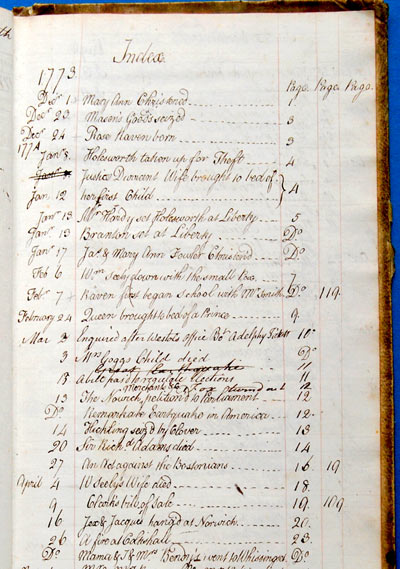 Index
1773
Page. Page. Page.
Decr. 1 Mary Ann Christened 1
Decr. 23 Mason's Goods seized 3
Decr. 24 Rose Raven born 3
1774
Janr. 8. Holesworth taken up for Theft 4
Justice Durrant Wife brought to bed of
Jan 12 her first Child 4
Janr. 13 Mr. Hardy set Holesworth at Liberty 5
Janr. 13 Branton set at Liberty Do
Janr. 17 Jas. & Mary Ann Fowler Christend Do
Feb 6 Wm Seely down with the small Pox 7
Febr. 7 Raven first began School with Mr. Smith Do 119
February 24 Queen brought to bed of a Prince 9.
Mar 2 Enquired after Weston's office Adelphy 10
3 Mrs Goggs Child died Do
11
13 A bill pass to regulate Elections 11
Merchant &c thrown out 12
13 The Norwich petition'd to Parliament 12
Do Remarkable Eartquake in America 12
14 Hickling seiz'd by Clover 13
20 Sir Richd Adams died 14
27 An Act against the Bostonians 16 19
April 4 W Seelys Wife died 18
9 Clarks bill of Sale 19. 109
16 Jex & Jacques hang'd at Norwich 20.
26 A fire at Coltishall 23.
Do Mama & J & Mrs Bendys went to Whissingset Do